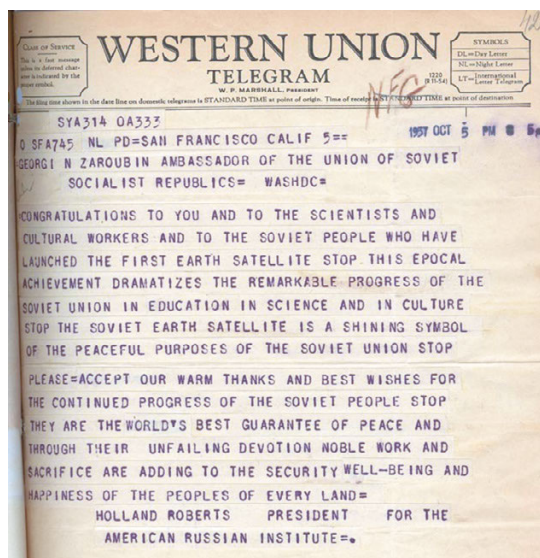 42
CLASS OF SERVICE
This is a fast message
unless its deferred char-
acter is indicated by the
proper symbol.
WESTERN UNION
TELEGRAM
W. P. MARSHALL, PRESIDENT
1220
(R 11-54)
SYMBOLS
DL=Day Letter
NL=Night Letter
LT=International Letter Telegram
The filing time shown in the date line on domestic telegrams is STANDARD TIME at point of origin. Time of receipt is STANDARD TIME at point of destination
SYA314 OA333
O SFA745 NL PD=SAN FRANCISCO CALIF 5==
1957 OCT 5 PM 8
GEORGI N ZAROUBIN AMBASSADOR OF THE UNION OF SOVIET
SOCIALIST REPUBLICS= WASHDC=
CONGRATULATIONS TO YOU AND TO THE SCIENTISTS AND
CULTURAL WORKERS AND TO THE SOVIET PEOPLE WHO HAVE
LAUNCHED THE FIRST EARTH SATELLITE STOP THIS EPOCAL
ACHIEVEMENT DRAMATIZES THE REMARKABLE PROGRESS OF THE
SOVIET UNION IN EDUCATION IN SCIENCE AND IN CULTURE
STOP THE SOVIET EARTH SATELLITE IS A SHINING SYMBOL
OF THE PEACEFUL PURPOSES OF THE SOVIET UNION STOP
PLEASE=ACCEPT OUR WARM THANKS AND BEST WISHES FOR
THE CONTINUED PROGRESS OF THE SOVIET PEOPLE STOP
THEY ARE THE WORLD'S BEST GUARANTEE OF PEACE AND
THROUGH THEIR UNFAILING DEVOTION NOBLE WORK AND
SACRIFICE ARE ADDING TO THE SECURITY WELL-BEING AND
HAPPINESS OF THE PEOPLES OF EVERY LAND=
HOLLAND ROBERTS PRESIDENT FOR THE
AMERICAN RUSSIAN INSTITUTE=.